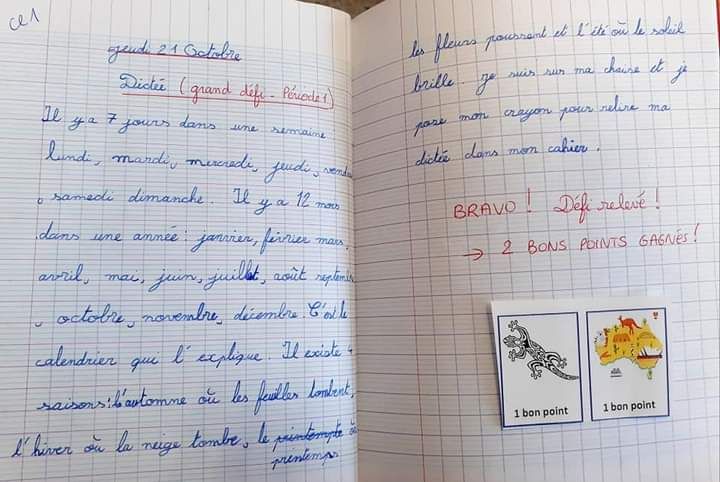 CE1
jeudi 21 Octobre
Dictée (grand défi - Période 1)
Il y a 7 jours dans une semaine
lundi, mardi, mercredi, jeudi, vend
, samedi dimanche. Il y a 12 mois
dans une année : janvier, février mars,
avril, mai, juin, juillet, août septem
, octobre, novembre, décembre. C'est le
calendrier qui l'explique. Il existe 4
saisons : l'automne où les feuilles tombent,
l'hiver où la neige tombe, le printempte où
printemps
les fleurs poussent et l'été où le soleil
brille. Je suis sur ma chaise et je
pose mon crayon pour relire ma
dictée dans mon cahier.
BRAVO ! Défi relevé !
→ 2 BONS POINTS GAGNÉS !
1 bon point
1 bon point